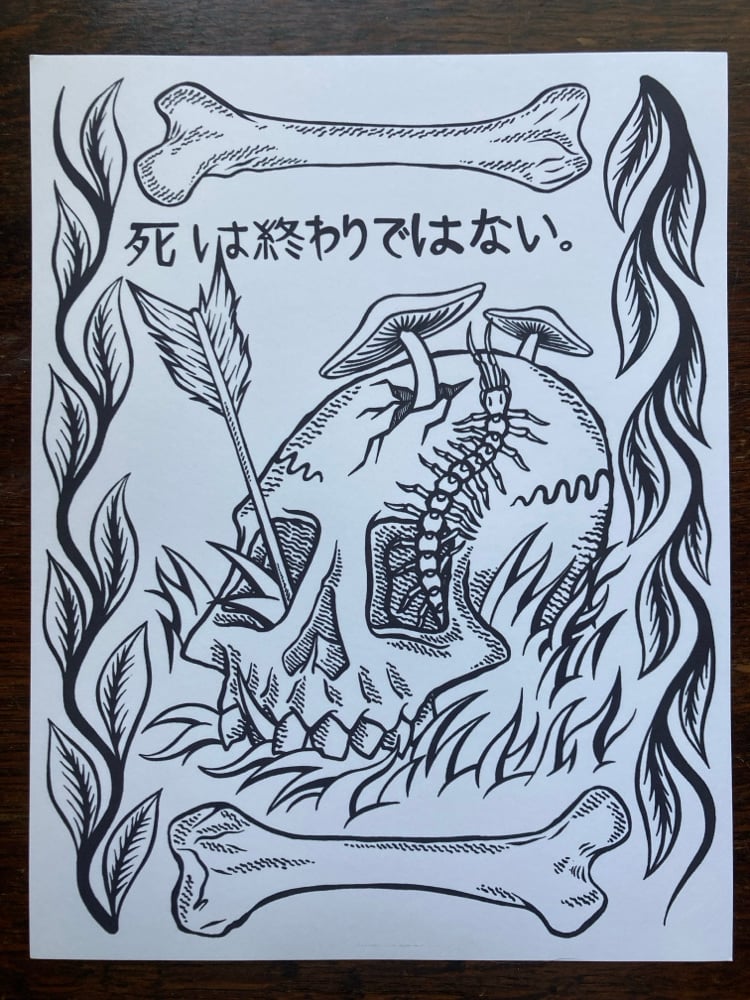 死は終わりではない。